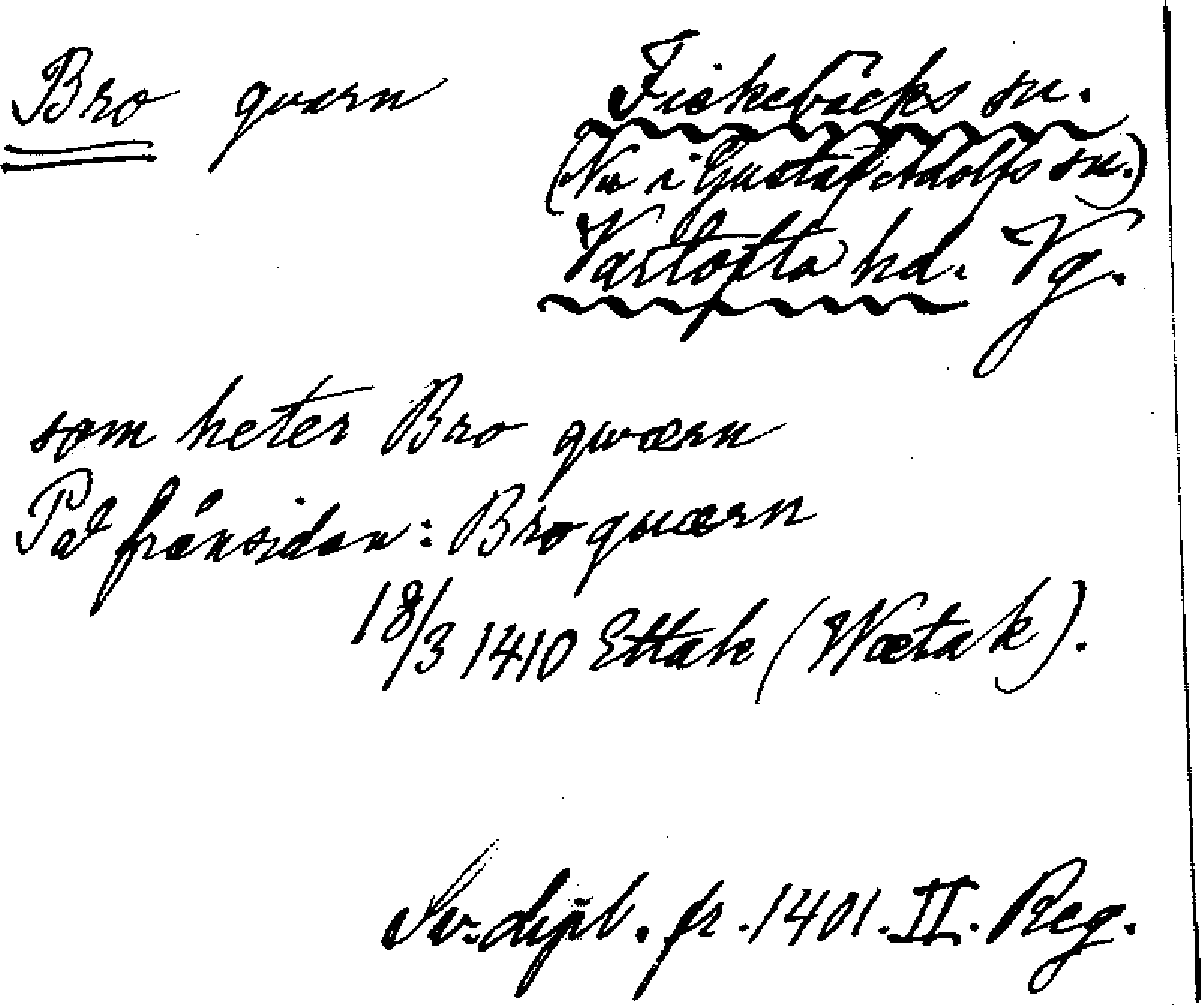 Bro qværn
Fiskebäcks sn.
(Nu i Gustaf Adolfs sn.)
Vartofta hd. Vg.
som heter Bro qwærn
På frånsidan: Bro quærn
18/3 1410 Ettak (Wætak).
Sv. dipl. fr. 1401. II. Reg.